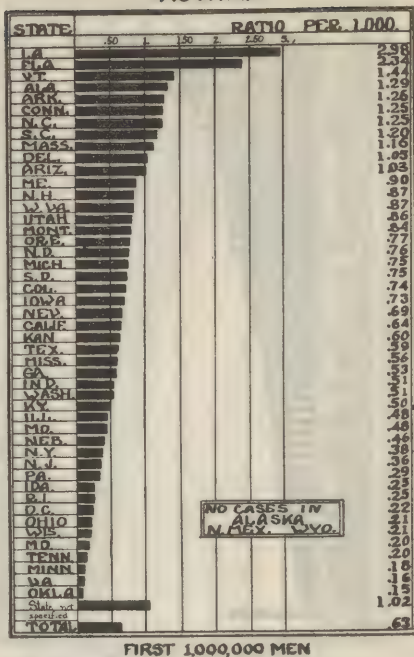 STATE RATIO PER 1.000
.50 1. 1.50 2. 2.50 3.
LA. 2.98
FLA. 2.34
VT. 1.44
ALA. 1.29
ARK. 1.26
CONN. 1.25
N.C. 1.25
S.C. 1.20
MASS. 1.16
DEL. 1.05
ARIZ. 1.03
ME. .90
N.H. .87
W.VA. .87
UTAH .86
MONT. .84
ORE. .77
N.D. .76
MICH. .75
S.D. .75
COL. .74
IOWA .73
NEV. .69
CALIF. .64
KAN. .60
TEX. .59
MISS. .56
GA. .53
IND. .51
WASH. .51
KY. .50
ILL. .48
MO. .48
NEB. .46
N.Y. .38
N.J. .36
PA. .29
IDA. .25
R.I. .25
D.C. .22
OHIO .21
WIS. .21
MD. .20
TENN. .20
MINN. .18
VA. .16
OKLA. .15
State not specified 1.02
TOTAL .63
NO CASES IN
ALASKA
N.MEX. WYO.
FIRST 1,000,000 MEN